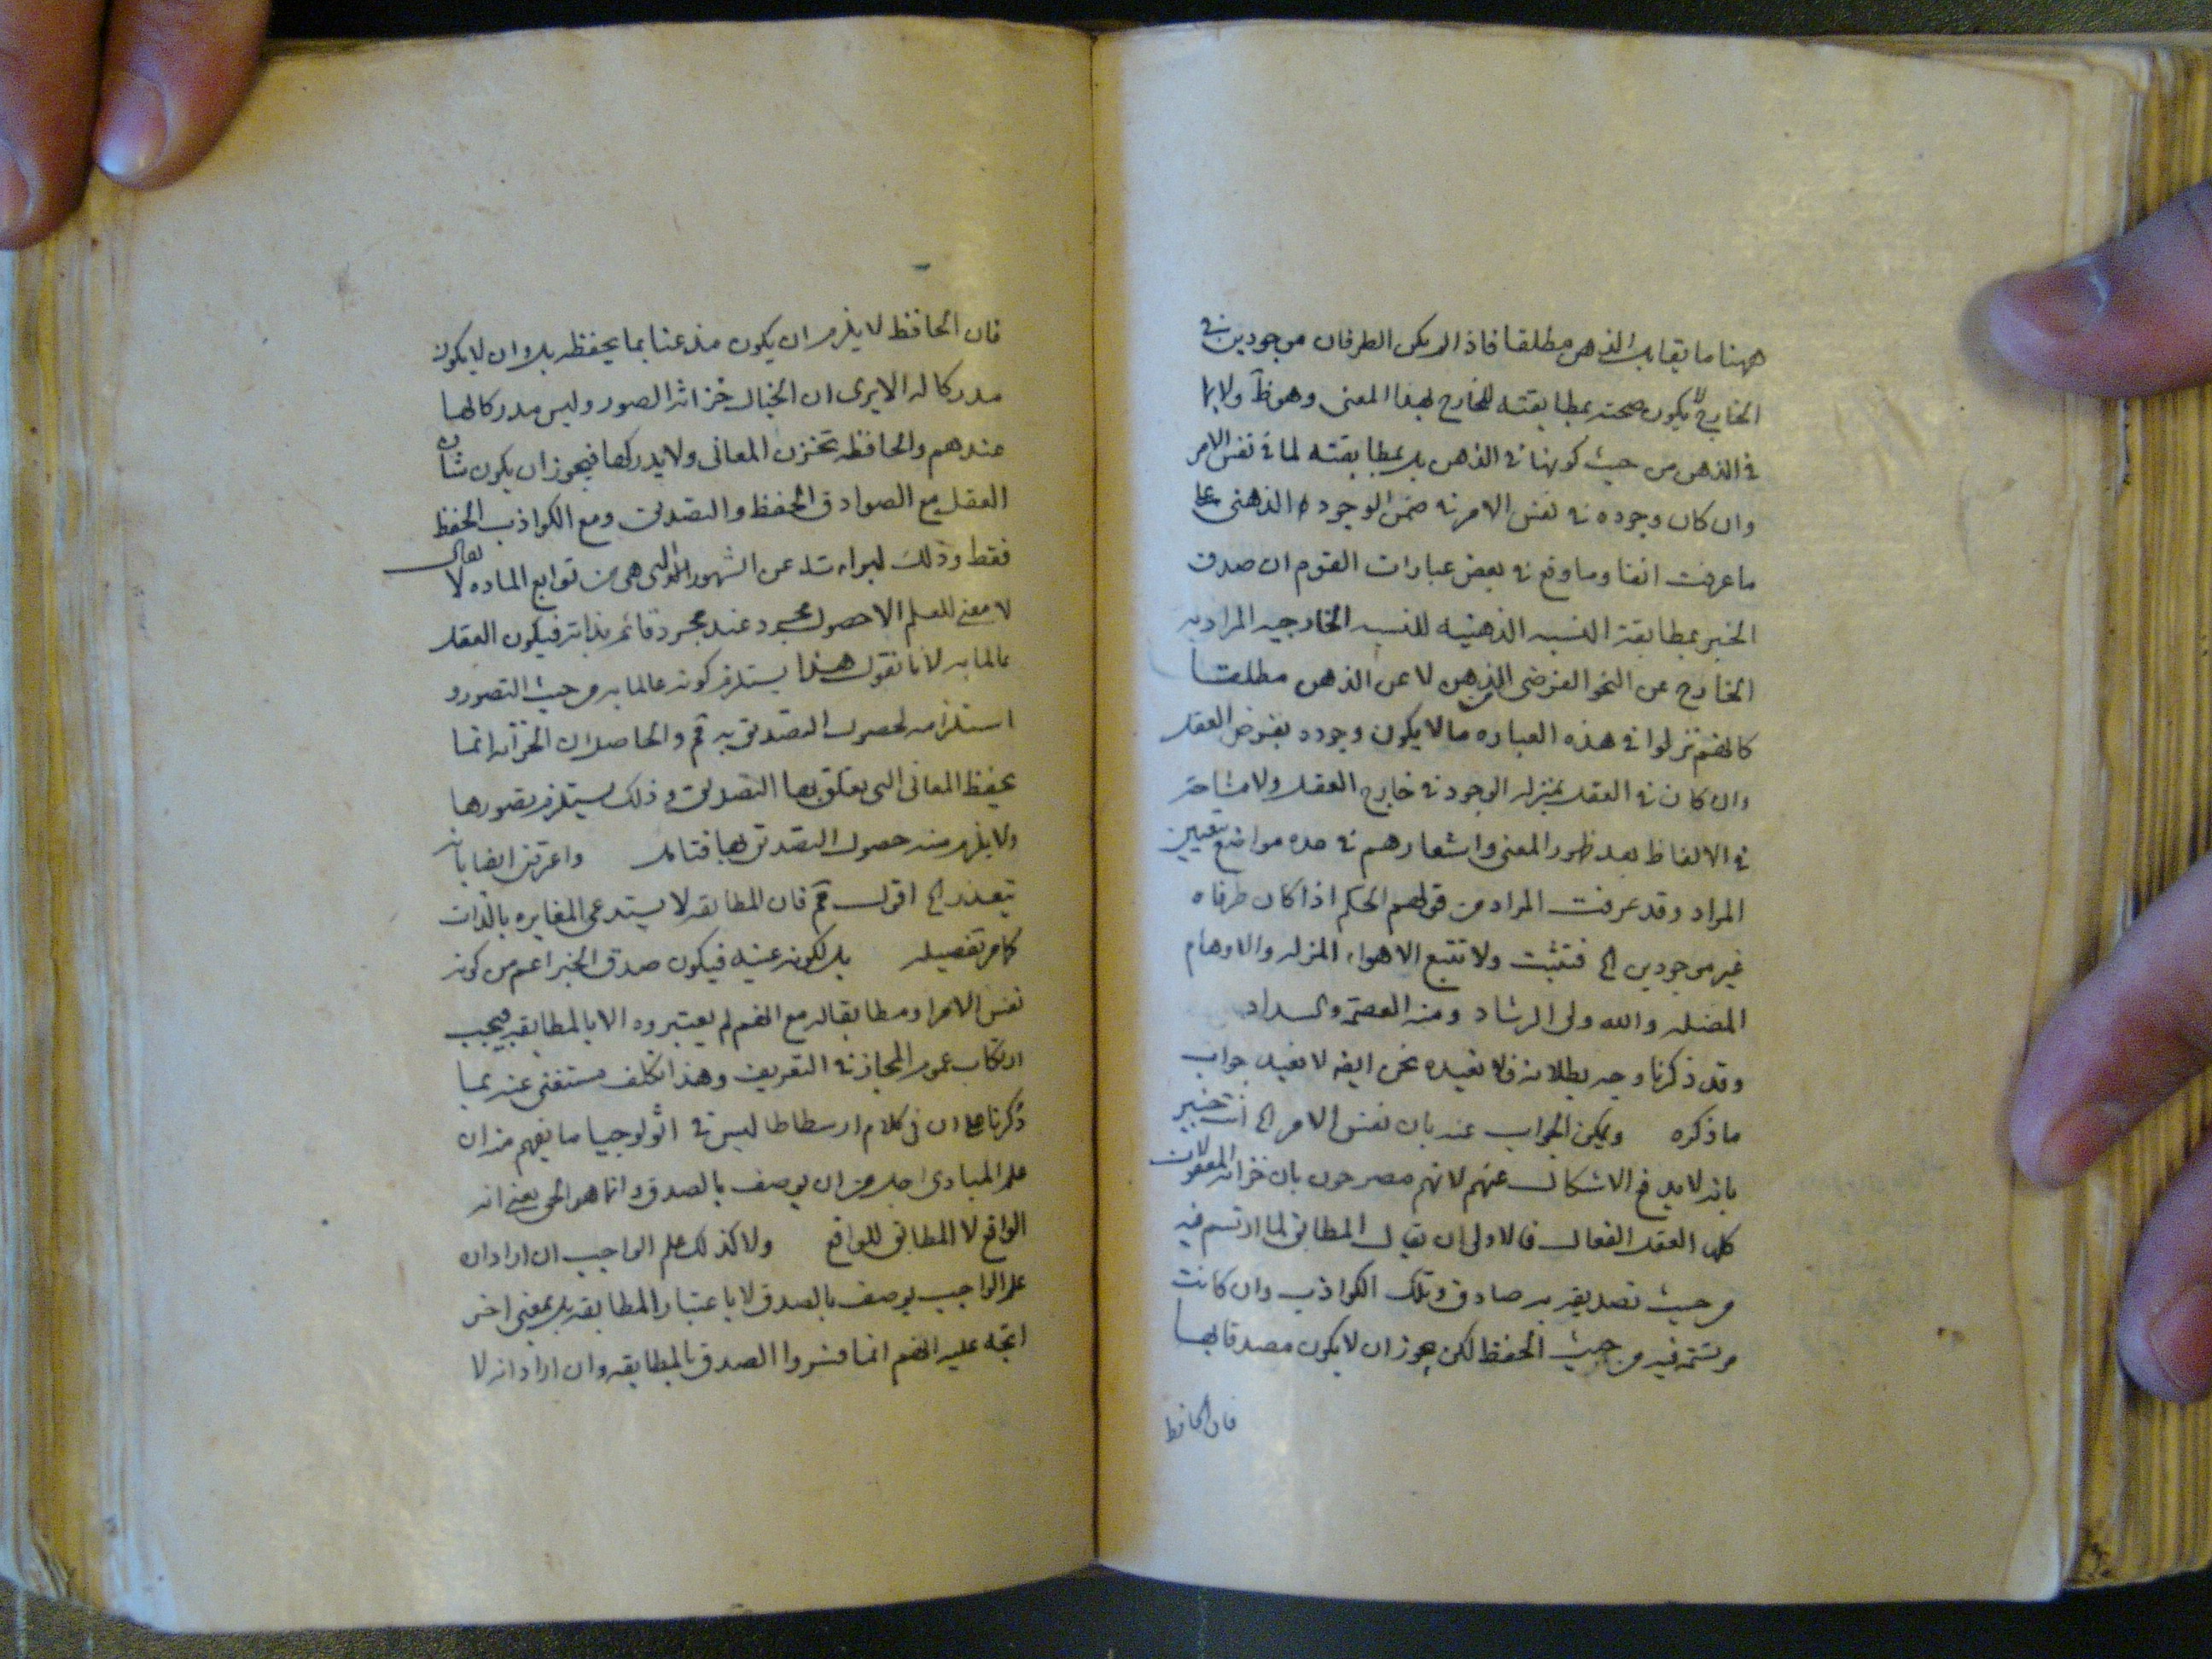 ههنا ما يقابل الذهن مطلقا فاذا لم يكن الطرفان موجودين في
الخارج لا يكون صحته بمطابقته للخارج بهذا المعنى وهو ظ ولا بما
في الذهن من حيث كونها في الذهن بل بمطابقته لما في نفس الامر
وان كان وجوده في نفس الامر في ضمن الوجود الذهني على
ما عرفت انفا وما وقع في بعض عبارات القوم ان صدق
الخبر بمطابقة النسبه الذهنيه للنسبه الخارجيه المراد به
الخارج عن النحو الفرضي الذهن لا عن الذهن مطلقا
كانهم نزلوا في هذه العباره ما لا يكون وجوده بفرض العقل
وان كان في العقل بمنزله الوجود في خارج العقل ولا مشاحة
في الالفاظ بعد ظهور المعنى واشعارهم في عده مواضع بتعيين
المراد وقد عرفت المراد من قولهم الحكم اذا كان طرفاه
غير موجودين الخ فتثبت ولا تتبع الاهواء المزله والاوهام
المضله والله ولى الرشاد ومنه العصمة والسداد
وقد ذكرنا وجه بطلانه فلا نعيده نحن ايضه لا نعيد جواب
ما ذكره ويمكن الجواب عنه بان نفس الامر الخ انت خبير
بانه لا يدفع الاشكال عنهم لانهم مصرحون بان خزانه المعقولات
كلها العقل الفعال فالاولى ان يقال المطابق لما ارتسم فيه
من حيث تصديقه به صادق وتلك الكواذب وان كانت
مرتسمه فيه من حيث الحفظ لكن يجوز ان لا يكون مصدقا بها
فان الحافظ
فان الحافظ لا يلزم ان يكون مذعنا بما يحفظه بل وان لا يكون
مدركا له الا يرى ان الخيال خزانة الصور وليس مدركا لها
عندهم والحافظه تخزن المعانى ولا يدركها فيجوز ان يكون شان
العقل مع الصوادق الحفظ والتصديق ومع الكواذب الحفظ
فقط وذلك لبراءته عن الشهور التى هى من توابع الماده لا يقال
لا معنى للعلم الا حصول مجرد عند مجرد قائم بذاته فيكون العقل
عالما به لانا نقول هذا يستلزم كونه عالما به من حيث التصور و
استلزامه لحصول التصديق به مم والحاصل ان الخزانه انما
يحفظ المعانى التى يتعلق بها التصديق وذلك يستلزم تصورها
ولا يلزم منه حصول التصديق بها فتامل واعترض ايضا بانه
يتعذر الخ اقول مم فان المطابقه لا يستدعى المغايره بالذات
كما مر تفصيله بل لكونه عينه فيكون صدق الخبر اعم من كونه
نفس الامر او مطابقا له مع انهم لم يعتبروه الا بالمطابقه فيجب
ارتكاب عموم المجاز في التعريف وهذا تكلف مستغنى عنه بما
ذكرنا على ان فى كلام ارسطاطاليس في اثولوجيا ما يفهم منه ان
علم المبادى اجل من ان يوصف بالصدق وانما هو الحق بمعنى انه
الواقع لا المطابق للواقع ولا كذلك علم الواجب ان اراد ان
علم الواجب يوصف بالصدق لا باعتبار المطابقه بل بمعنى اخر
اتجه عليه انهم انما فسروا الصدق بالمطابقه وان اراد انه لا